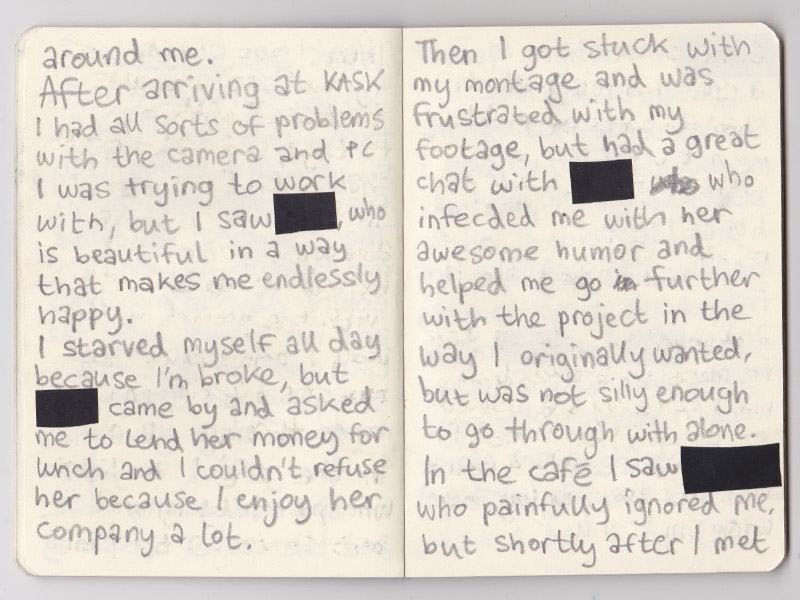 around me.
After arriving at KASK
I had all sorts of problems
with the camera and PC
I was trying to work
with, but I saw , who
is beautiful in a way
that makes me endlessly
happy.
I starved myself all day
because I'm broke, but
came by and asked
me to lend her money for
lunch and I couldn't refuse
her because I enjoy her
company a lot.
Then I got stuck with
my montage and was
frustrated with my
footage, but had a great
chat with who
infecded me with her
awesome humor and
helped me go further
with the project in the
way I originally wanted,
but was not silly enough
to go through with alone.
In the café I saw
who painfully ignored me,
but shortly after I met